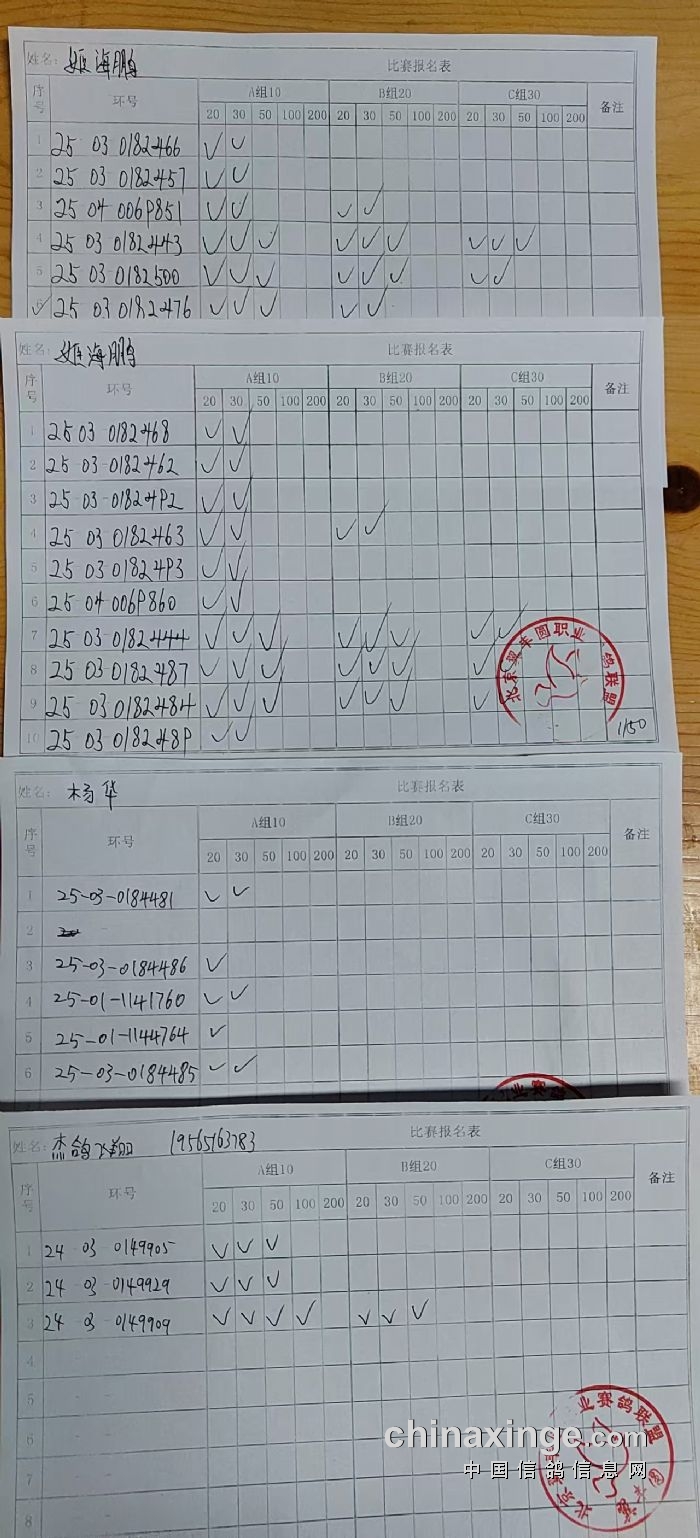 姓名: 姬海鹏 比赛报名表
序号 环号 A组10 B组20 C组30 备注
20 30 50 100 200 20 30 50 100 200 20 30 50 100 200
1 25 03 0182466 ✓ ✓
2 25 03 0182457 ✓ ✓
3 25 04 006P851 ✓ ✓ ✓ ✓
4 25 03 0182443 ✓ ✓ ✓ ✓ ✓ ✓ ✓ ✓ ✓
5 25 03 0182500 ✓ ✓ ✓ ✓ ✓ ✓ ✓ ✓
✓ 6 25 03 0182476 ✓ ✓ ✓ ✓ ✓
姓名: 姬海鹏 比赛报名表
序号 环号 A组10 B组20 C组30 备注
20 30 50 100 200 20 30 50 100 200 20 30 50 100 200
1 25 03-0182468 ✓ ✓
2 25-03-0182462 ✓ ✓
3 25-03-01824P2 ✓ ✓
4 25 03 0182463 ✓ ✓ ✓ ✓
5 25 03 01824P3 ✓ ✓
6 25-04-006P860 ✓ ✓
7 25-03-0182444 ✓ ✓ ✓ ✓ ✓ ✓ ✓ ✓
8 25-03-0182487 ✓ ✓ ✓ ✓ ✓ ✓ ✓
9 25 03 0182484 ✓ ✓ ✓ ✓ ✓ ✓ ✓
10 25 03 018248P ✓ ✓
北京翼丰圆职业 鸽联盟
1150
姓名: 杨华 比赛报名表
序号 环号 A组10 B组20 C组30 备注
20 30 50 100 200 20 30 50 100 200 20 30 50 100 200
1 25-03-0184481 ✓ ✓
2
3 25-03-0184486 ✓
4 25-01-1141760 ✓ ✓
5 25-01-1144764 ✓
6 25-03-0184485 ✓ ✓
业赛
姓名: 杰鸽飞翔 19565163783 比赛报名表
序号 环号 A组10 B组20 C组30 备注
20 30 50 100 200 20 30 50 100 200 20 30 50 100 200
1 24 03 0149905 ✓ ✓ ✓
2 24 03-0149929 ✓ ✓ ✓
3 24 03-0149909 ✓ ✓ ✓ ✓ ✓ ✓ ✓
4
5
6
7
8
业赛鸽联盟
chinaxinge.com
中国信鸽信息网